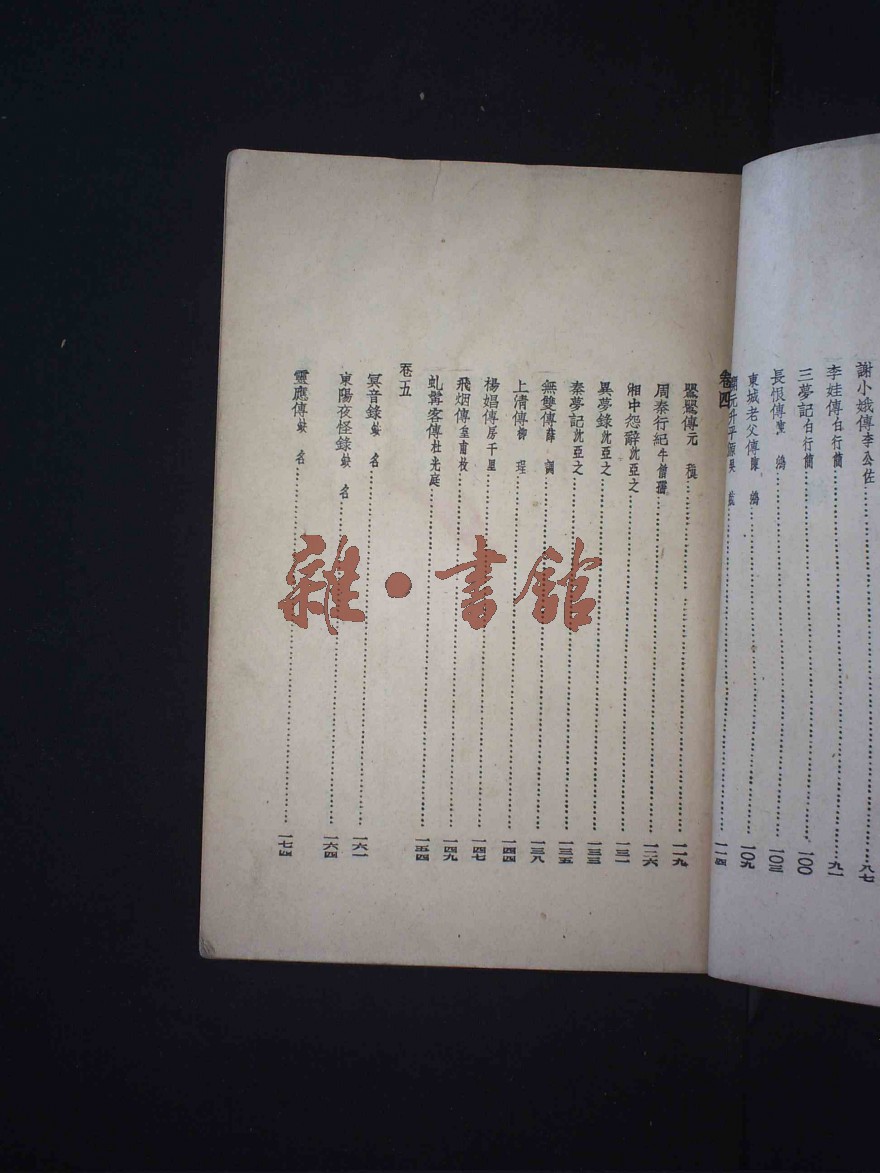 謝小娥傳 李公佐 八七
李娃傳 白行簡 九一
三夢記 白行簡 一〇〇
長恨傳 陳鴻 一〇三
東城老父傳 陳鴻 一〇九
開元升平源 吳兢 一一四
卷四
鶯鶯傳 元稹 一一九
周秦行紀 牛僧孺 一二六
湘中怨辭 沈亞之 一三一
異夢錄 沈亞之 一三三
秦夢記 沈亞之 一三五
無雙傳 薛調 一三八
上清傳 柳珵 一四四
楊娼傳 房千里 一四七
飛烟傳 皇甫枚 一四九
虬髯客傳 杜光庭 一五四
卷五
冥音錄 缺名 一六一
東陽夜怪錄 缺名 一六四
靈應傳 缺名 一七四
雜·書館